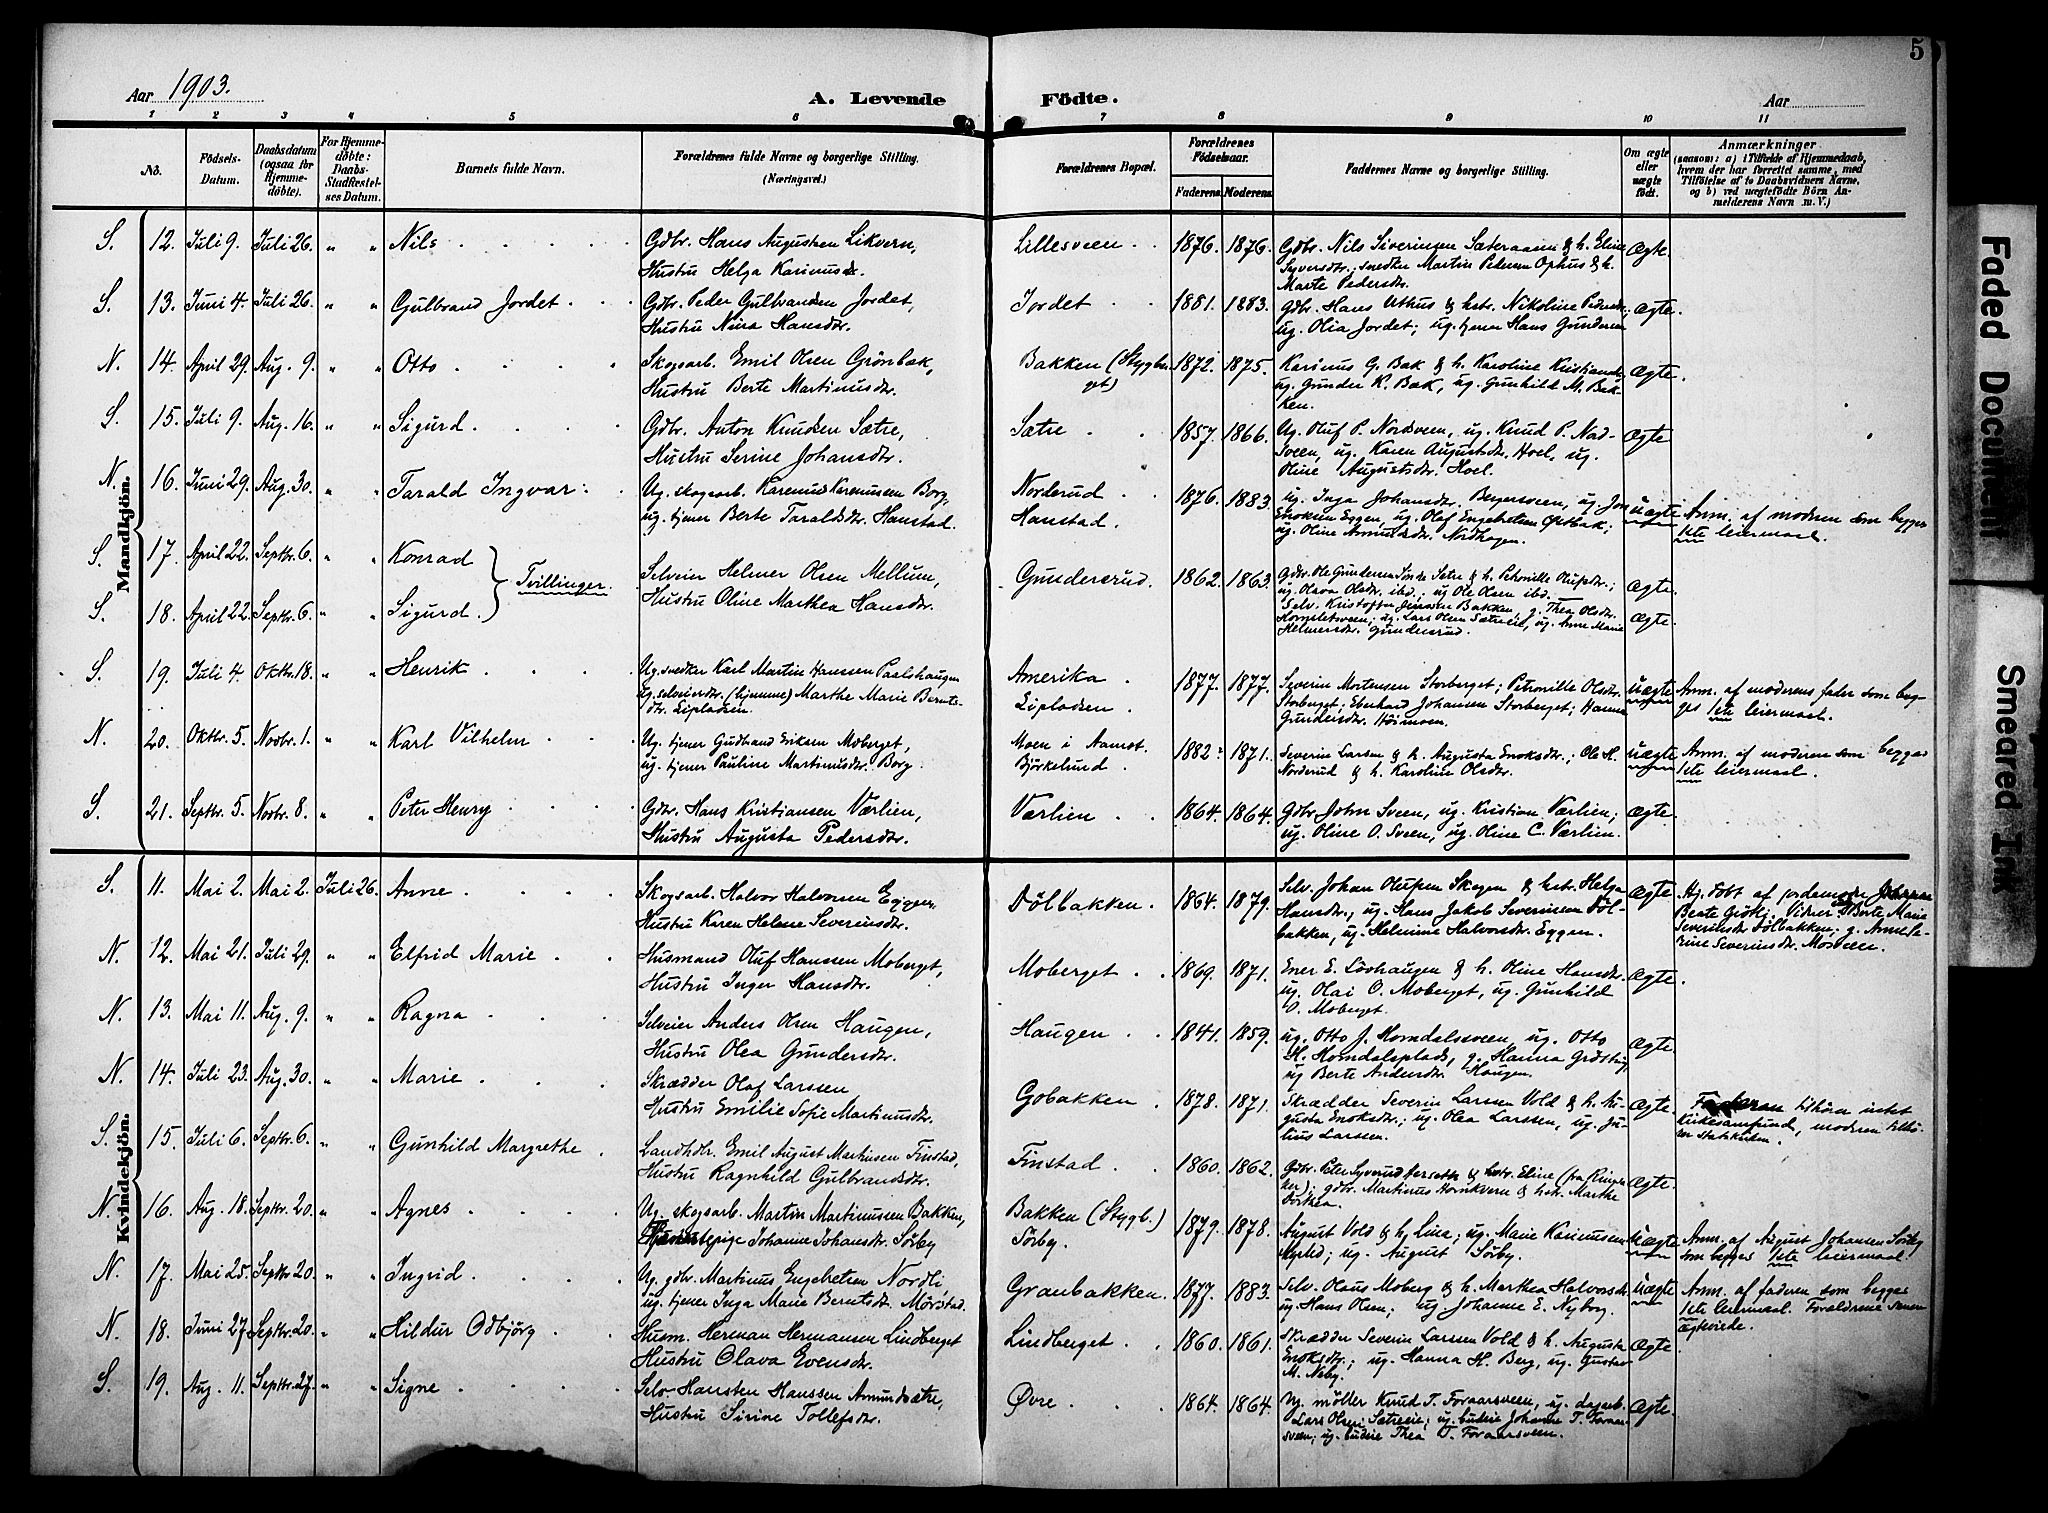 Aar 1903.
A. Levende Födte.
Aar
5
1 2 3 4 5 6 7 8 9 10 11
No.
Födsels-Datum.
Daabsdatum (ogsaa for Hjemmedöbte).
For Hjemmedöbte: Daabs-Stadfæstelses Datum.
Barnets fulde Navn.
Forældrenes fulde Navne og borgerlige Stilling.
(Næringsvei.)
Forældrenes Bopæl.
Forældrenes Födselsaar.
Faderens Moderens
Faddernes Navne og borgerlige Stilling.
Om ægte eller uægte födt.
Anmærkninger
(saasom: a) i Tilfælde af Hjemmedaab, hvem der har forrettet samme, med Tilföielse af to Daabsvidners Navne, og b) ved uægtefödte Börn Anmelderens Navn m. V.)
Mandkjön.
S. 12. Juli 9. Juli 26. " " Nils
Gdbr. Hans Augustsen Likvern,
Hustru Helga Karinusd.
Lillesveen 1876. 1876.
Gdbr. Nils Siverinsen Sæteraaen & h. Eline
Syversdtr.; snedker Martin Pedersen Ophus & h.
Marte Pedersdtr.
Ægte.
S. 13. Juni 4. Juli 26. " " Gulbrand Jordet
Gdbr. Peder Gulbrandsen Jordet,
Hustru Nina Hansdtr.
Jordet 1881. 1883.
Gdbr. Hans Uthus & hstr. Nikoline Pedersdtr.;
ug. Olia Jordet; ug. tjener Hans Gundersen
Ægte.
N. 14. April 29. Aug. 9. " " Otto
Skogsarb. Emil Olsen Grönbak,
Hustru Berte Martinusdtr.
Bakken (Stygbergget) 1872. 1875.
Karinus G. Bak & h. Karoline Kristiansdtr.
ug. Gunder K. Bak, ug. Gunhild M. Bakken.
Ægte.
S. 15. Juli 9. Aug. 16. " " Sigurd
Gdbr. Anton Knudsen Sætre,
Hustru Serine Johansdtr.
Sætre 1857. 1866.
Ug. Oluf P. Nordsveen, ug. Knud P. Nordsveen,
ug. Karen Augustsdtr. Hoel, ug.
Oline Augustsdtr. Hoel.
Ægte
N. 16. Juni 29. Aug. 30. " " Tarald Ingvar
Ug. skogsarb. Karenus Karenussen Borg,
ug. tjener Berte Taraldsdtr. Hanstad.
Norderud
Hanstad. 1876. 1883.
ug. Inga Johansdtr. Bergersveen, ug. Jon
Enoksen Eggen, ug. Olaf Engebretsen
ug. Oline Amundsdtr. Nordhagen.
Uægte
Anm. af moderen som begges
1ste leiermaal.
S. 17. April 22. Septbr. 6. " " Konrad
S. 18. April 22. Septbr. 6. " " Sigurd.
Tvillinger.
Selveier Helmer Olsen Mellum,
Hustru Oline Marthea Hansdtr.
Gundersrud. 1862. 1863.
Gdbr. Ole Gundersen Sætre & h. Petronille Olufsdtr.;
ug. Olava Olsdtr. ibd.; ug Ole Olsen ibd.
Selv. Kristoffer Jensen Bakken, g. Thea Olsdtr.
ug. Lars Olsen Sætreeie, ug. Anne Marie
Helmersdtr. Gundersrud.
Ægte.
Ægte.
S. 19. Juli 4. Oktbr. 18. " " Henrik
Ug. snedker Karl Martin Hanssen Paalshaugen
Ug. selveierdtr. (hjemme) Marthe Marie Berntsdtr.
Lipladsen
Amerika
Lipladsen 1877. 1877.
Severin Mortensen Storberget; Petronille Olsdtr.
Storberget; Eberhard Johansen Storberget; Hanna
Gundersdtr.
Uægte
Anm. af moderens fader som begges
1ste leiermaal.
N. 20. Oktbr. 5. Novbr. 1. " " Karl Vilhelm
Ug. tjener Gudbrand Eriksen Moberget,
ug. tjener Pauline Martinusdtr. Borg.
Moen i Aamot.
Björkelund. 1882. 1871.
Severin Larsen & h. Augusta Enoksdtr.; Ole H.
Norderud & h. Karoline Olsdtr.
Uægte
Anm. af moderen som begges
1ste leiermaal.
S. 21. Septbr. 5. Novbr. 8. " " Peter Henry
Gdbr. Hans Kristiansen Værlien,
Hustru Augusta Pedersdtr.
Værlien 1864. 1864.
Gdbr. John Sveen, ug. Kristian Værlien;
ug. Oline O. Sveen, ug. Oline C. Værlien.
Ægte.
Kvindekjön.
S. 11. Mai 2. Mai 2. Juli 26. Anne
Skogsarb. Halvor Halvorsen Eggen,
Hustru Karen Helene Severinsdtr.
Dölbakken. 1864. 1879.
Selv. Johan Olufsen Skogen & hstr. Helga
Hansdtr., ug. Hans Jakob Severinsen Dölbakken,
ug. Helmine Halvorsdtr. Eggen.
Ægte
Hj. döbt af jordemoder
Beate Vidner: Berte Marie
Severinsdtr. Dölbakken; g. Anne
Severinsdtr. Mosveen.
N. 12. Mai 21. Juli 29. " " Elfrid Marie
Husmand Oluf Hanssen Moberget,
Hustru Inger Hansdtr.
Moberget 1869. 1871.
Ener E. Lövhaugen & h. Oline Hansdtr.
ug. Olai O. Moberget, ug. Gunhild
O. Moberget.
Ægte.
N. 13. Mai 11. Aug. 9. " " Ragna
Selveier Anders Olsen Haugen,
Hustru Olea Gundersdtr.
Haugen 1841. 1859.
ug. Otto J. Horndalssveen, ug. Otto
H. Horndalsplads, g. Hanna
ug Berte Andersdtr. Haugen.
Ægte.
N. 14. Juli 23. Aug. 30. " " Marie
Skrædder Olaf Larssen
Hustru Emilie Sofie Martinusdtr.
Gobakken 1878. 1871.
Skrædder Severin Larssen Vold & h. Augusta
Enoksdtr.; ug. Olea Larssen, ug. Julius
Larssen.
Ægte
Faderen tilhörer intet
kirkesamfund, moderen tilhörer
Statskirken.
S. 15. Juli 6. Septbr. 6. " " Gunhild Margrethe
Landhdlr. Emil August Martinsen Finstad,
Hustru Ragnhild Gulbrandsdtr.
Finstad 1860. 1862.
Gdbr. Peter Syverud & hstr. Eline (fra Ringsaker);
gdbr. Martinus Hornkvern & hstr. Marthe
Dorthea
Ægte.
N. 16. Aug. 18. Septbr. 20. " " Agnes
Ug. skogsarb. Martin Martinussen Bakken,
Johanne Johansdtr. Sörby
Bakken (Stygb.)
Sörby. 1879. 1878.
August Vold & h. Lina; ug. Marie Karinussen
ug. August Sörby.
Uægte
Anm. af August Johansen Sörby
som begges 1ste leiermaal.
N. 17. Mai 25. Septbr 20. " " Ingrid
Ug. gdbr. Martinus Engebretsen Nordli
ug. tjener Inga Marie Berntsdtr. Mörstad.
Granbakken. 1877. 1883.
Selv. Olaus Moberg & h. Marthea Halvorsdtr.
ug. Hans Olsen; ug. Johanne E. Nyborg.
Uægte
Anm. af faderen som begges
1ste leiermaal. Forældrene senere
ægteviede.
N. 18. Juni 27. Septbr. 20. " " Hildur Odbjörg
Husm. Herman Hermansen Lindberget
Hustru Olava Evensdtr.
Lindberget 1860. 1861.
Skrædder Severin Larssen Vold & h. Augusta
Enoksdtr.; ug. Hanna H. Berg, ug. Gustav
M. Neby.
Ægte
S. 19. Aug. 11. Septbr. 27. " " Signe
Selv. Hansten Hanssen Amundsætre,
Hustru Sirine Tollefsdtr.
Øvre 1864. 1864.
Ug. möller Knud T. Foraarsveen, ug. dagarb.
Lars Olsen Sætreeie; ug. budeie Johanne T. Foraarsveen;
ug. budeie Thea T. Foraarsveen.
Ægte.
Faded Document
Smeared Ink